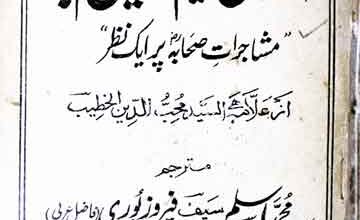 "مشاجراتِ صحابہؓ پر ایک نظر"
از علامہ السید محب الدین الخطیب
مترجم
محمد اسلم سیف فیروز پوری (فاضل عربی)